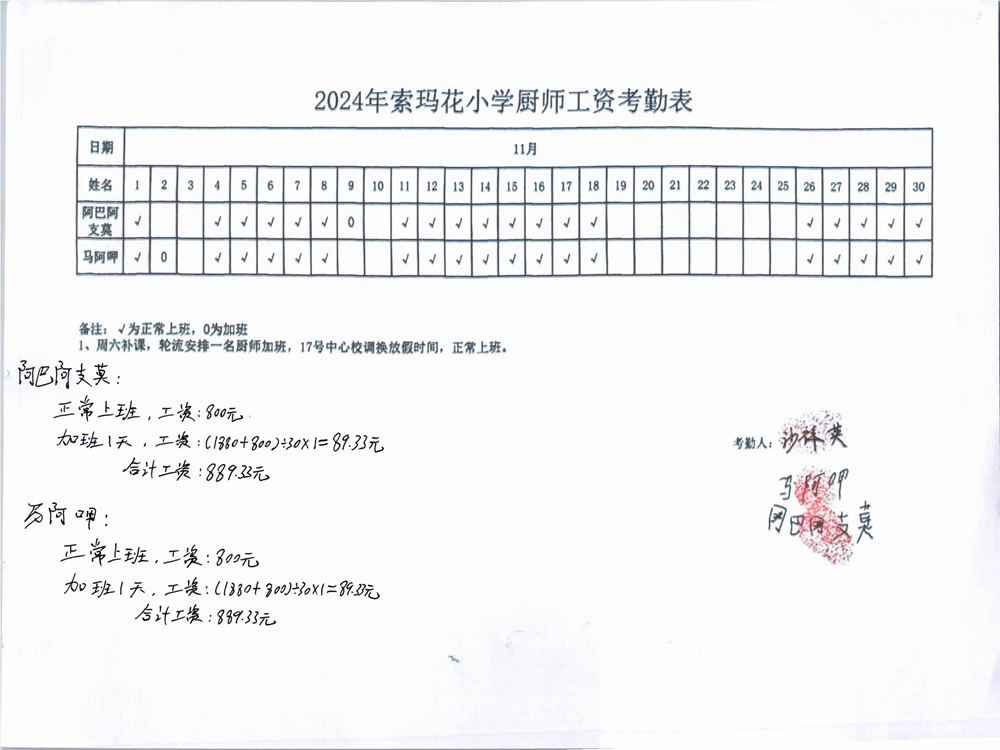 2024年索玛花小学厨师工资考勤表
日期 11月
姓名 1 2 3 4 5 6 7 8 9 10 11 12 13 14 15 16 17 18 19 20 21 22 23 24 25 26 27 28 29 30
阿巴阿支莫 √ √ √ √ √ √ 0 √ √ √ √ √ √ √ √ √ √ √ √ √
马阿呷 √ 0 √ √ √ √ √ √ √ √ √ √ √ √ √ √ √ √ √ √
备注：√为正常上班，0为加班
1、周六补课，轮流安排一名厨师加班，17号中心校调换放假时间，正常上班。
阿巴阿支莫：
正常上班，工资：800元
加班1天，工资：(1880+800)÷30×1=89.33元
合计工资：889.33元
考勤人：沙 英
马阿呷
阿巴阿支莫
马阿呷：
正常上班，工资：800元
加班1天，工资：(1880+800)÷30×1=89.33元
合计工资：889.33元